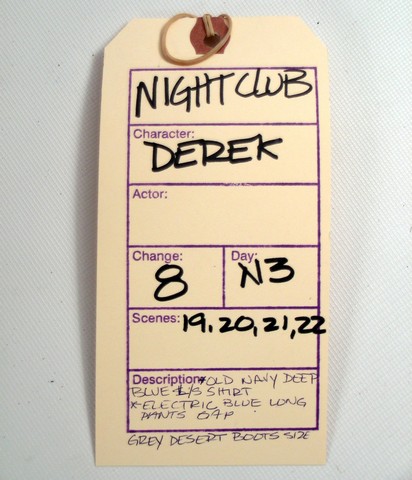 NIGHTCLUB
Character:
DEREK
Actor:
Change: Day:
8 N3
Scenes: 19, 20, 21, 22
Description: OLD NAVY DEEP
BLUE L/S SHIRT
x-ELECTRIC BLUE LONG
PANTS GAP
GREY DESERT BOOTS SIZE